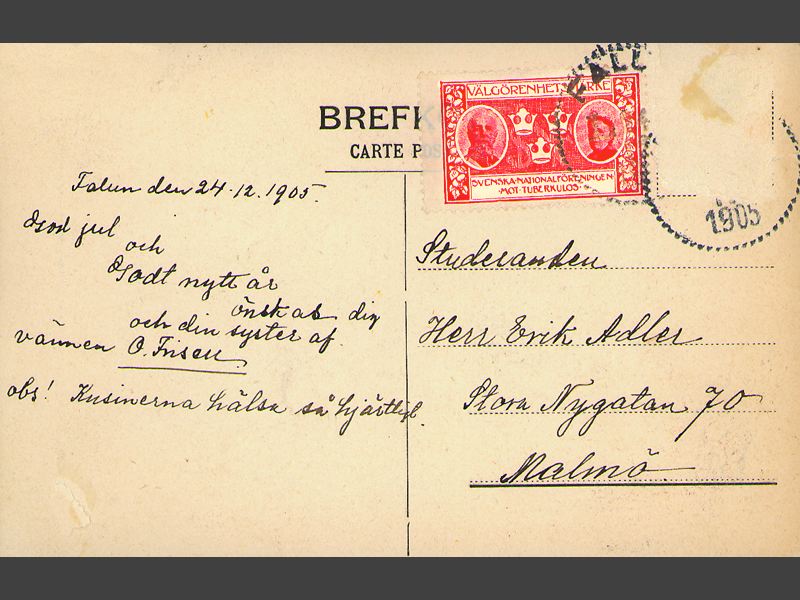 BREFK
CARTE POS
VÄLGÖRENHETS RKE
SVENSKA·NATIONALFÖRENINGEN
·MOT·TUBERKULOS·
FAL
1905
Falun den 24.12.1905.
God jul
och
Godt nytt år
önskas dig
och din syster af
vännen O. Frisell
obs! Kusinerna hälsa så hjärtligt.
Studeranden
Herr Erik Adler
Stora Nygatan 70
Malmö